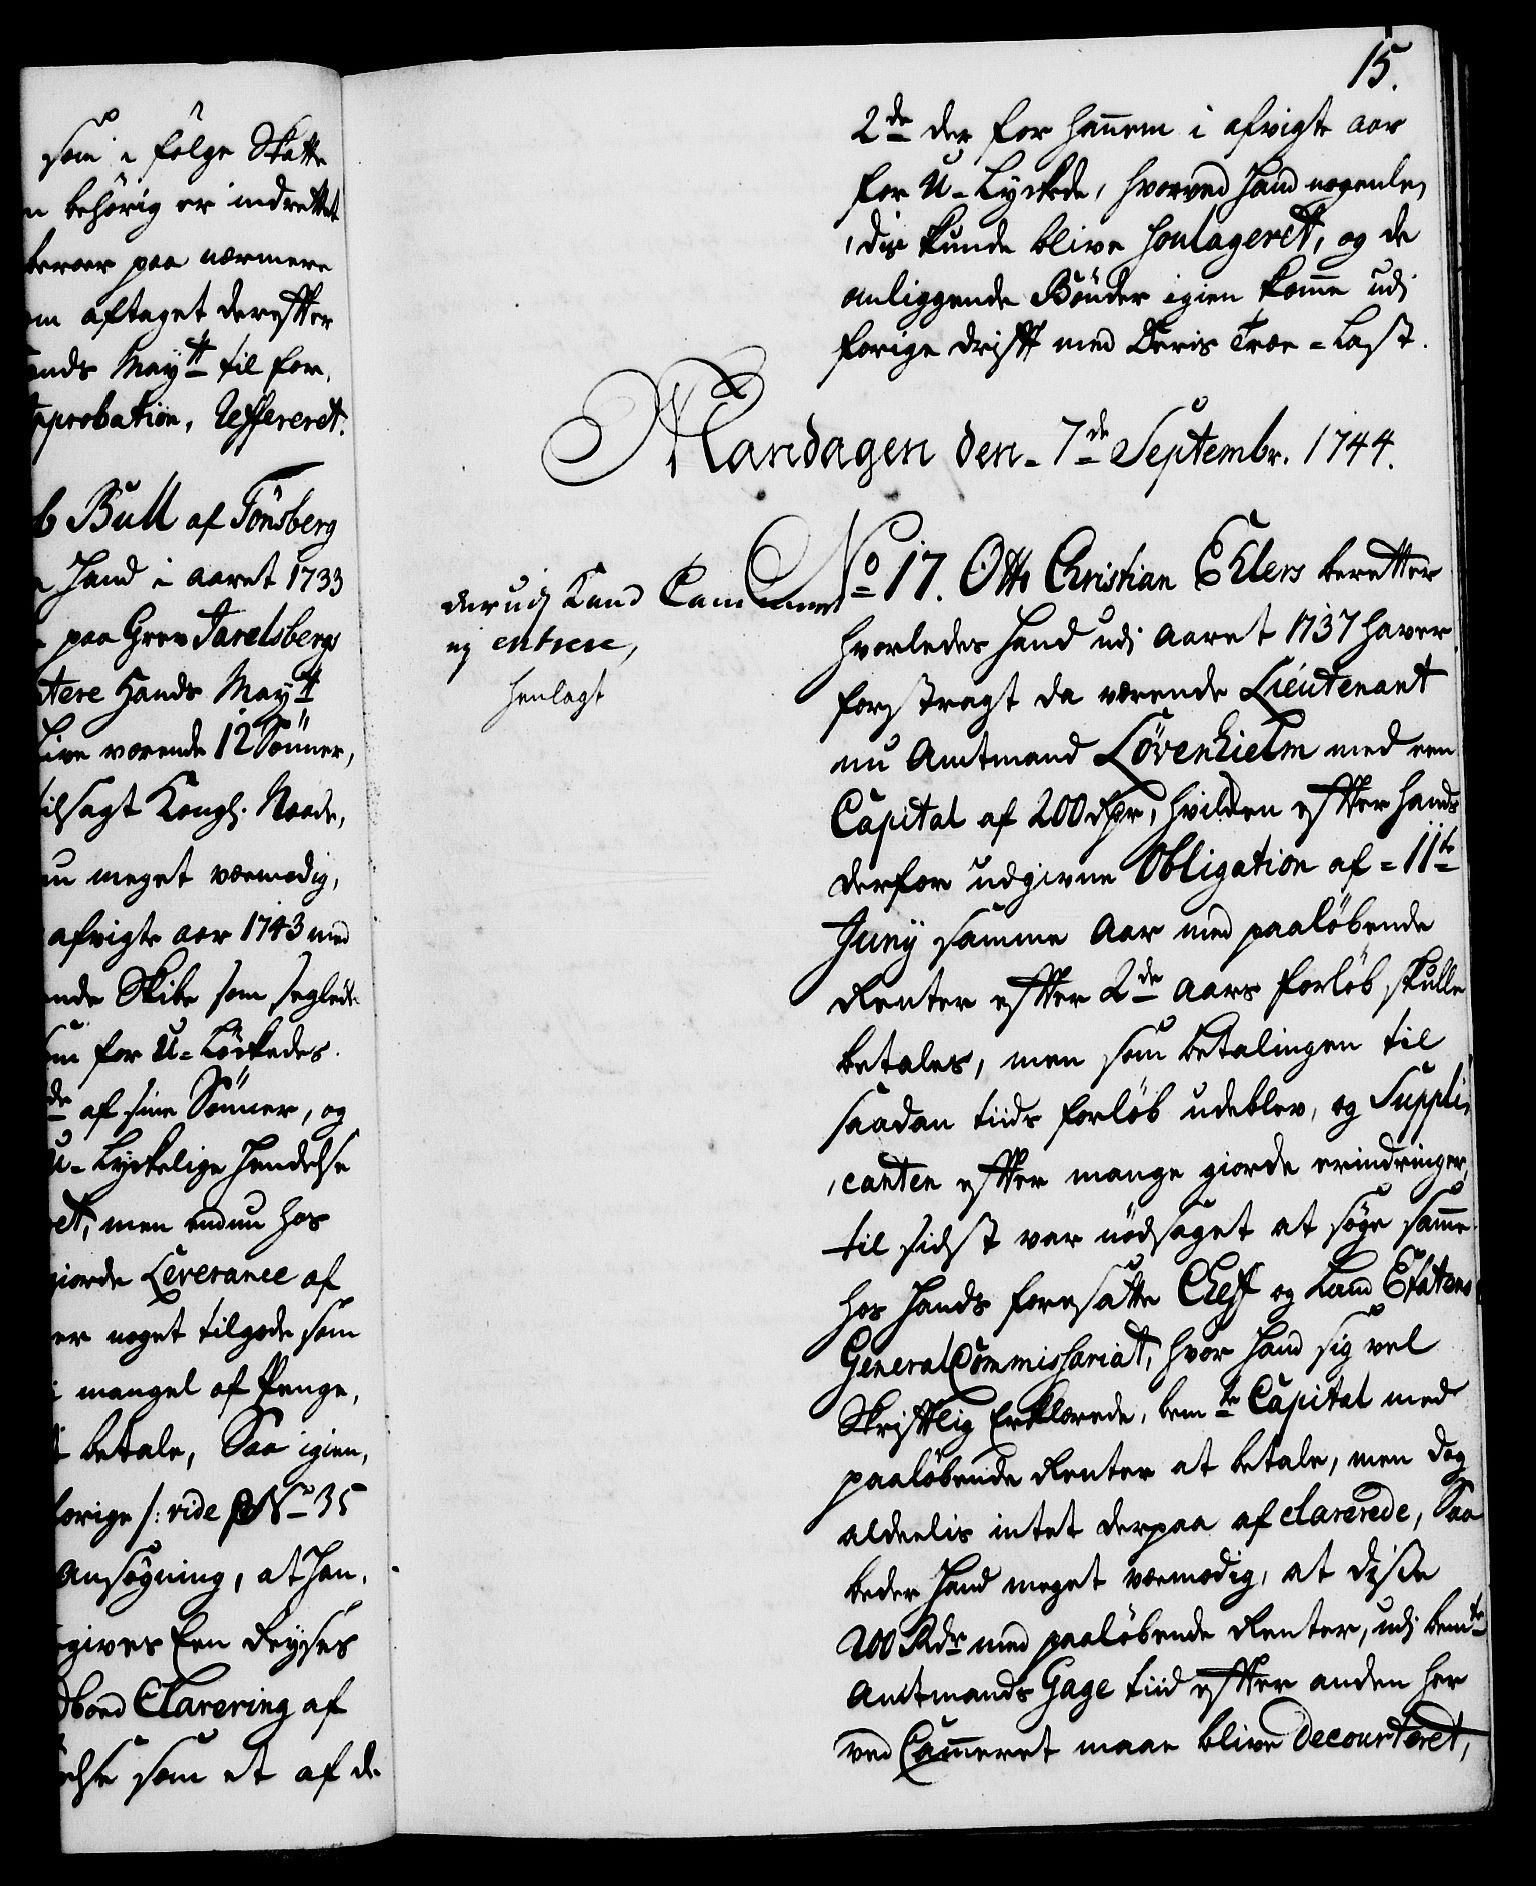 som i følge Skatte
behörig er indrettet
beroer paa nærmere
aftaget derefter
Hands Maytt til for,
Approbation, Refereret.
Bull af Tönsberg
Hand i aaret 1733
paa Grev Jarelsbergs
Hands Maytt
værende 12 Sönner,
tilsagt Kongl: Naade,
nu meget væemodig,
afvigte aar 1743 med
Skibe som seglede
for U=Löckedes.
de af sine Sönner, og
U=Lyckelige Hendelse
men endnu hos
giorde Leverance af
noget tilgode som
i mangel af Penge,
betale, Saa igien,
forige /: vide No 35
Ansögning, at Han,
gives Een Reyses
Clarering af
som et af de
15.
2de der for hannem i afvigte aar
for U=Lyckede, hvorved Hand nogenle,
,dis kunde blive soulageret, og de
omliggende Bönder igien komme udj
forige drifft med Deris Træe=Last.
Mandagen den 7de Septembr. 1744.
derudj Kand Cammeret
ej entrere,
henlagt
No 17. Otto Christian Ehlers beretter
hvorledes Hand udj Aaret 1737 haver
forstragt da værende Lieutenant
nu Amtmand Lövenhielm med een
Capital af 200 Rdr, hvilcken efter hands
derfor udgivne Obligation af = 11te
Junij samme Aar med paalöbende
Renter efter 2de Aars forlöb skulle
betales, men som betalingen til
saadan tiids forlöb udeblev, og Suppli,
,canten efter mange giorde erindringer,
til sidst var nödsaget at søge samme
hos Hands foresatte Cheff og Land Etatens
General Commissariat, hvor Hand sig vel
Skrifftlig Erklærede, bemte Capital med
paalöbende Renter at betale, men dog
aldeelis intet derpaa af clarerede, Saa
beder Hand meget væemodig, at disse
200 Rdr med paalöbende Renter, udj bemte
Amtmands Gage tiid efter anden her
ved Cammeret maae blive decourteret,